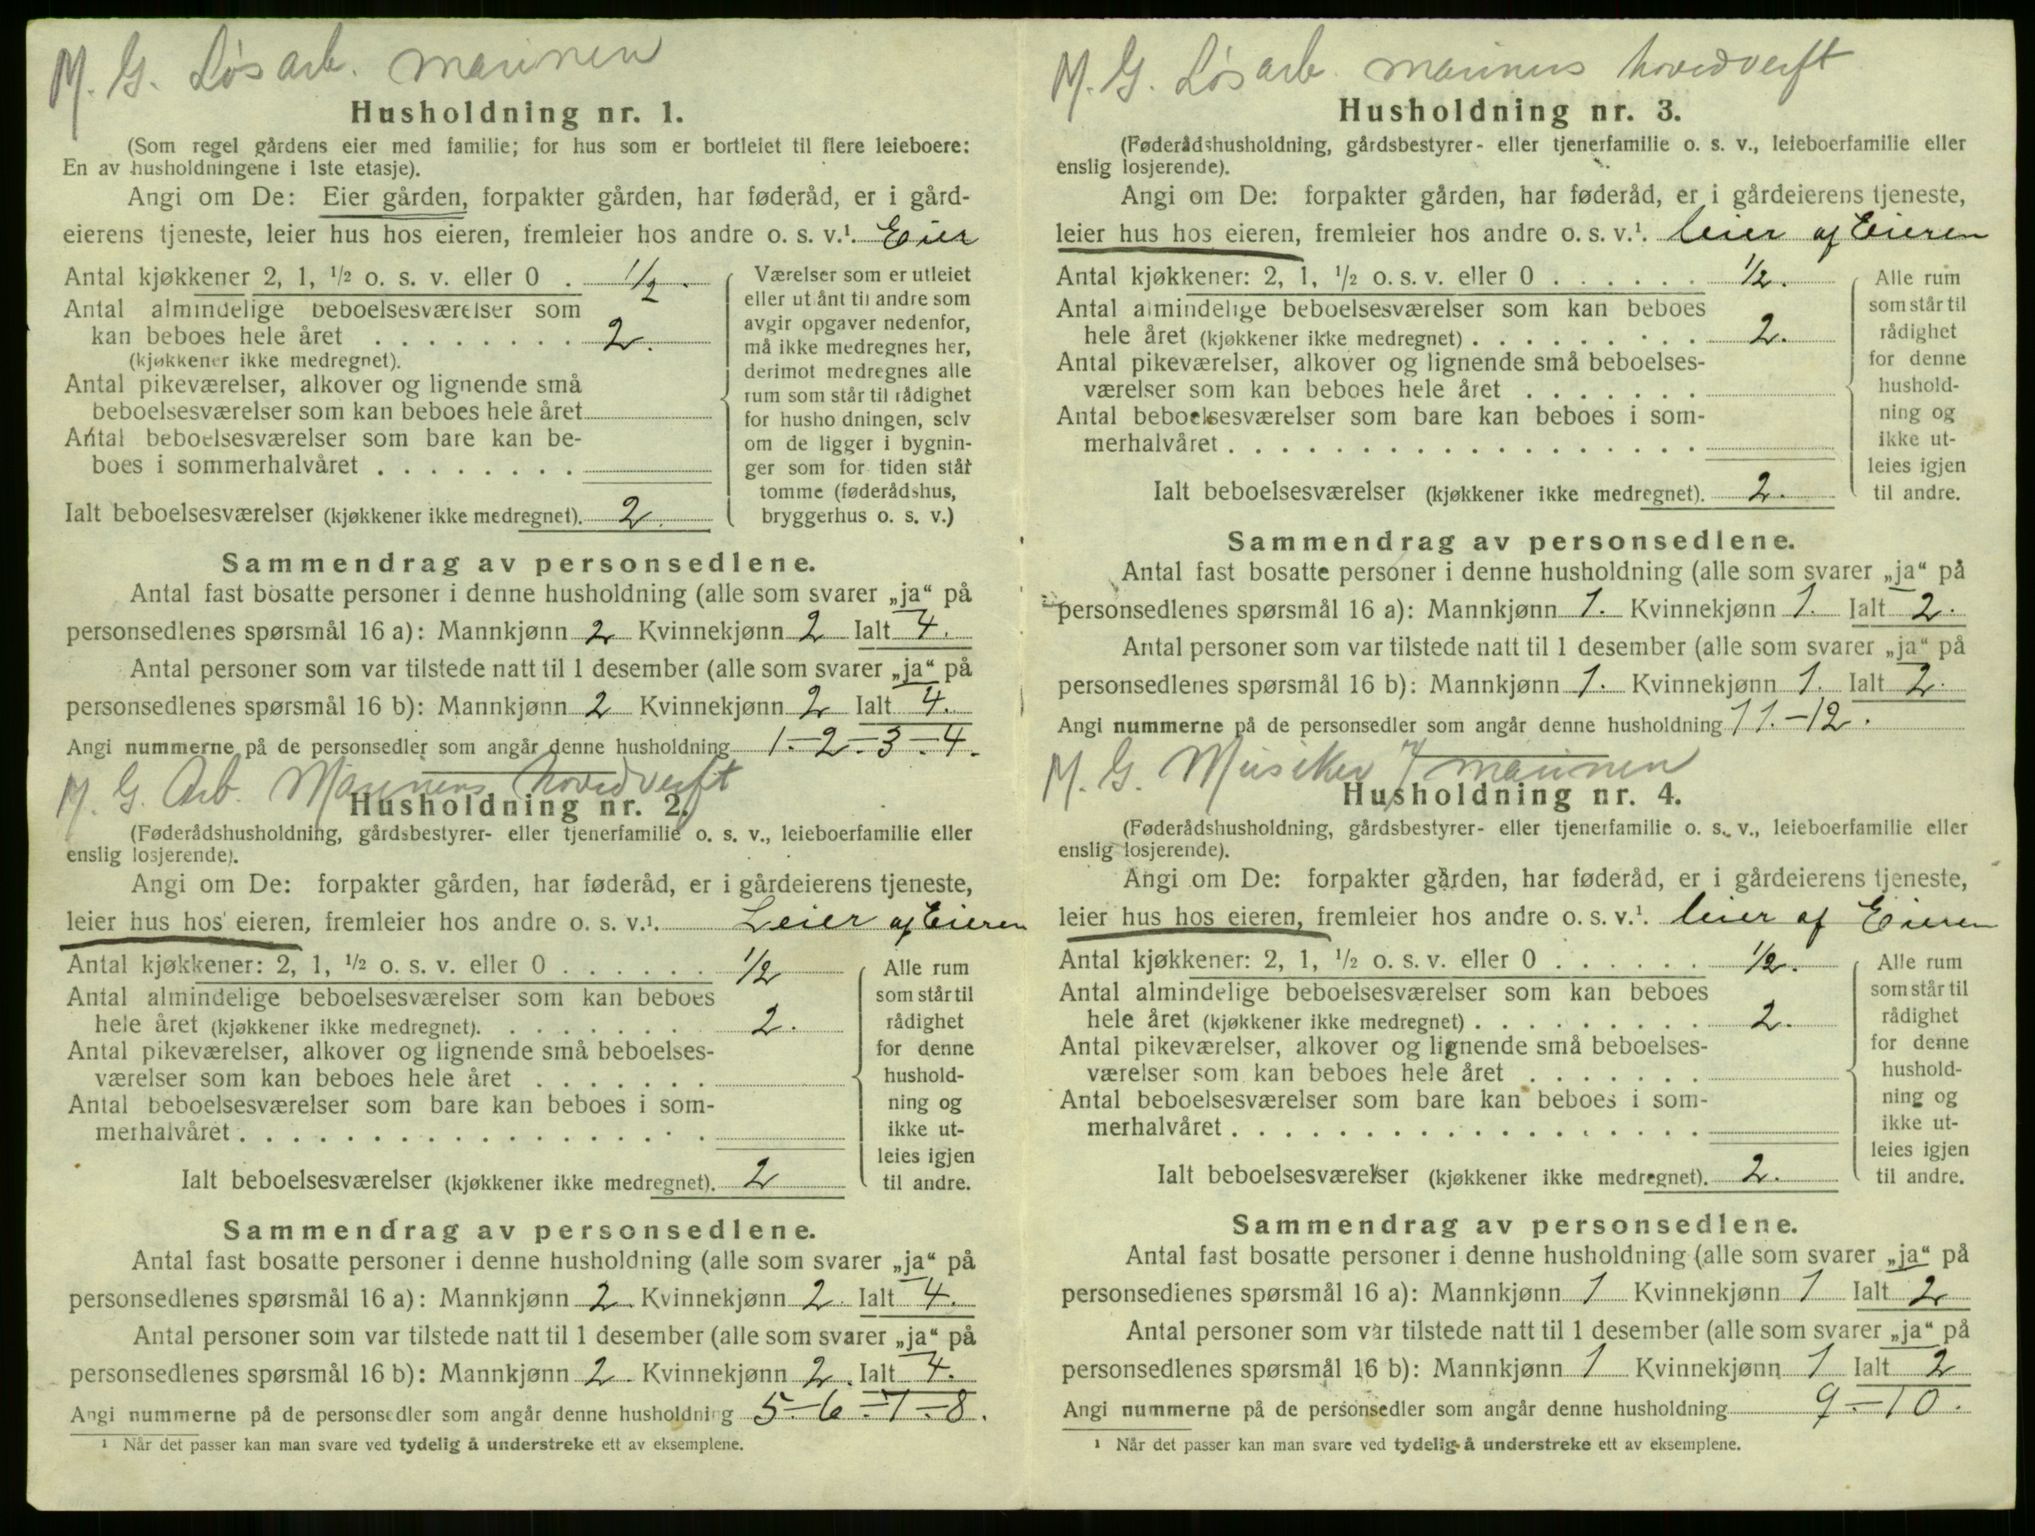 M. G. Løsarb. marinen
Husholdning nr. 1.
(Som regel gårdens eier med familie; for hus som er bortleiet til flere leieboere:
En av husholdningene i 1ste etasje).
Angi om De: Eier gården, forpakter gården, har føderåd, er i gård-
eierens tjeneste, leier hus hos eieren, fremleier hos andre o. s. v.¹. Eier
Antal kjøkkener 2, 1, ½ o. s. v. eller 0 . 1/2.
Antal almindelige beboelsesværelser som
kan beboes hele året . . . . . . . . . 2.
(kjøkkener ikke medregnet).
Antal pikeværelser, alkover og lignende små
beboelsesværelser som kan beboes hele året
Antal beboelsesværelser som bare kan be-
boes i sommerhalvåret . . . . . . . .
Ialt beboelsesværelser (kjøkkener ikke medregnet). 2.
Værelser som er utleiet
eller utlånt til andre som
avgir opgaver nedenfor,
må ikke medregnes her,
derimot medregnes alle
rum som står til rådighet
for husholdningen, selv
om de ligger i bygnin-
ger som for tiden står
tomme (føderådshus,
bryggerhus o. s. v.)
Sammendrag av personsedlene.
Antal fast bosatte personer i denne husholdning (alle som svarer „ja“ på
personsedlenes spørsmål 16 a): Mannkjønn 2 Kvinnekjønn 2 Ialt 4.
Antal personer som var tilstede natt til 1 desember (alle som svarer „ja“ på
personsedlenes spørsmål 16 b): Mannkjønn 2 Kvinnekjønn 2 Ialt 4.
Angi nummerne på de personsedler som angår denne husholdning 1.-2-3-4.
M. G. Arb. Marinens hovedverft
Husholdning nr. 2.
(Føderådshusholdning, gårdsbestyrer- eller tjenerfamilie o. s. v., leieboerfamilie eller
enslig losjerende).
Angi om De: forpakter gården, har føderåd, er i gårdeierens tjeneste,
leier hus hos eieren, fremleier hos andre o. s. v.¹. Leier af Eieren
Antal kjøkkener: 2, 1, ½ o. s. v. eller 0 . . . . . . 1/2
Antal almindelige beboelsesværelser som kan beboes
hele året (kjøkkener ikke medregnet). . . . . . . . . 2.
Antal pikeværelser, alkover og lignende små beboelses-
værelser som kan beboes hele året . . . . . . .
Antal beboelsesværelser som bare kan beboes i som-
merhalvåret . . . . . . . . . . . . . . . . . .
Ialt beboelsesværelser (kjøkkener ikke medregnet). 2
Alle rum
som står til
rådighet
for denne
hushold-
ning og
ikke ut-
leies igjen
til andre.
Sammendrag av personsedlene.
Antal fast bosatte personer i denne husholdning (alle som svarer „ja“ på
personsedlenes spørsmål 16 a): Mannkjønn 2. Kvinnekjønn 2. Ialt 4.
Antal personer som var tilstede natt til 1 desember (alle som svarer „ja“ på
personsedlenes spørsmål 16 b): Mannkjønn 2. Kvinnekjønn 2. Ialt 4.
Angi nummerne på de personsedler som angår denne husholdning 5-6-7-8.
¹ Når det passer kan man svare ved tydelig å understreke ett av eksemplene.
M. G. Løsarb. marinens hovedverft
Husholdning nr. 3.
(Føderådshusholdning, gårdsbestyrer- eller tjenerfamilie o. s. v., leieboerfamilie eller
enslig losjerende).
Angi om De: forpakter gården, har føderåd, er i gårdeierens tjeneste,
leier hus hos eieren, fremleier hos andre o. s. v.¹. leier af Eieren
Antal kjøkkener: 2, 1, ½ o. s. v. eller 0 . . . . . . 1/2.
Antal almindelige beboelsesværelser som kan beboes
hele året (kjøkkener ikke medregnet) . . . . . . . . . 2.
Antal pikeværelser, alkover og lignende små beboelses-
værelser som kan beboes hele året . . . . . . .
Antal beboelsesværelser som bare kan beboes i som-
merhalvåret . . . . . . . . . . . . . . . . . .
Ialt beboelsesværelser (kjøkkener ikke medregnet). 2.
Alle rum
som står til
rådighet
for denne
hushold-
ning og
ikke ut-
leies igjen
til andre.
Sammendrag av personsedlene.
Antal fast bosatte personer i denne husholdning (alle som svarer „ja“ på
personsedlenes spørsmål 16 a): Mannkjønn 1. Kvinnekjønn 1. Ialt 2.
Antal personer som var tilstede natt til 1 desember (alle som svarer „ja“ på
personsedlenes spørsmål 16 b): Mannkjønn 1. Kvinnekjønn 1. Ialt 2.
Angi nummerne på de personsedler som angår denne husholdning 11.-12.
M. G. Musiker marinen
Husholdning nr. 4.
(Føderådshusholdning, gårdsbestyrer- eller tjenerfamilie o. s. v., leieboerfamilie eller
enslig losjerende).
Angi om De: forpakter gården, har føderåd, er i gårdeierens tjeneste,
leier hus hos eieren, fremleier hos andre o. s. v.¹. leier af Eieren
Antal kjøkkener: 2, 1, ½ o. s. v. eller 0 . . . . . . 1/2.
Antal almindelige beboelsesværelser som kan beboes
hele året (kjøkkener ikke medregnet) . . . . . . . . . 2.
Antal pikeværelser, alkover og lignende små beboelses-
værelser som kan beboes hele året . . . . . . .
Antal beboelsesværelser som bare kan beboes i som-
merhalvåret . . . . . . . . . . . . . . . . . .
Ialt beboelsesværelser (kjøkkener ikke medregnet). 2.
Alle rum
som står til
rådighet
for denne
hushold-
ning og
ikke ut-
leies igjen
til andre.
Sammendrag av personsedlene.
Antal fast bosatte personer i denne husholdning (alle som svarer „ja“ på
personsedlenes spørsmål 16 a): Mannkjønn 1 Kvinnekjønn 1 Ialt 2
Antal personer som var tilstede natt til 1 desember (alle som svarer „ja“ på
personsedlenes spørsmål 16 b): Mannkjønn 1 Kvinnekjønn 1 Ialt 2
Angi nummerne på de personsedler som angår denne husholdning 9-10.
¹ Når det passer kan man svare ved tydelig å understreke ett av eksemplene.